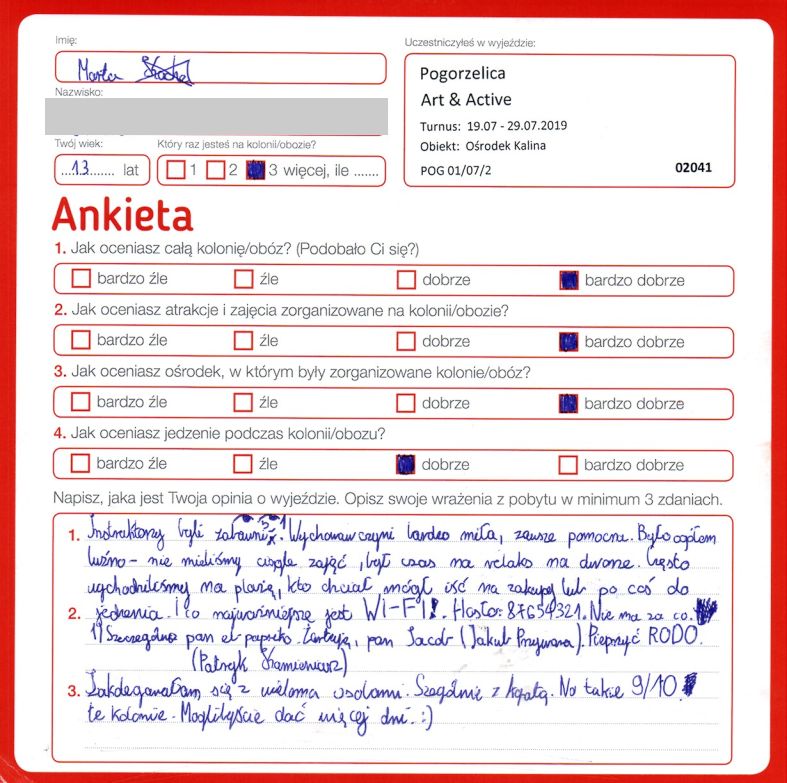 Imię:
Marta
Nazwisko:
Uczestniczyłeś w wyjeździe:
Pogorzelica
Art & Active
Turnus: 19.07 - 29.07.2019
Obiekt: Ośrodek Kalina
POG 01/07/2 02041
Twój wiek: Który raz jesteś na kolonii/obozie?
...13....... lat 1 2 3 więcej, ile .......
Ankieta
1. Jak oceniasz całą kolonię/obóz? (Podobało Ci się?)
bardzo źle źle dobrze bardzo dobrze
2. Jak oceniasz atrakcje i zajęcia zorganizowane na kolonii/obozie?
bardzo źle źle dobrze bardzo dobrze
3. Jak oceniasz ośrodek, w którym były zorganizowane kolonie/obóz?
bardzo źle źle dobrze bardzo dobrze
4. Jak oceniasz jedzenie podczas kolonii/obozu?
bardzo źle źle dobrze bardzo dobrze
Napisz, jaka jest Twoja opinia o wyjeździe. Opisz swoje wrażenia z pobytu w minimum 3 zdaniach.
1. Instruktorzy byli zabawni 1) Wychowawczyni bardzo miła, zawsze pomocna. Było ogółem
luźno - nie mieliśmy ciągle zajęć, był czas na relaks na dworze. Często
wychodziliśmy na plażę, kto chciał mógł iść na zakupy lub po coś do
2. jedzenia. I co najważniejsze jest WI-FI! Hasło: 87654321. Nie ma za co.
1) Szczególnie pan el-papriko. Żartuję, pan Jacob (Jakub Przywara). Pieprzyć RODO.
(Patryk
3. Zakolegowałam się z wieloma osobami. Szególnie z Agatą. No takie 9/10
te kolonie. Moglibyście dać więcej dni. :)